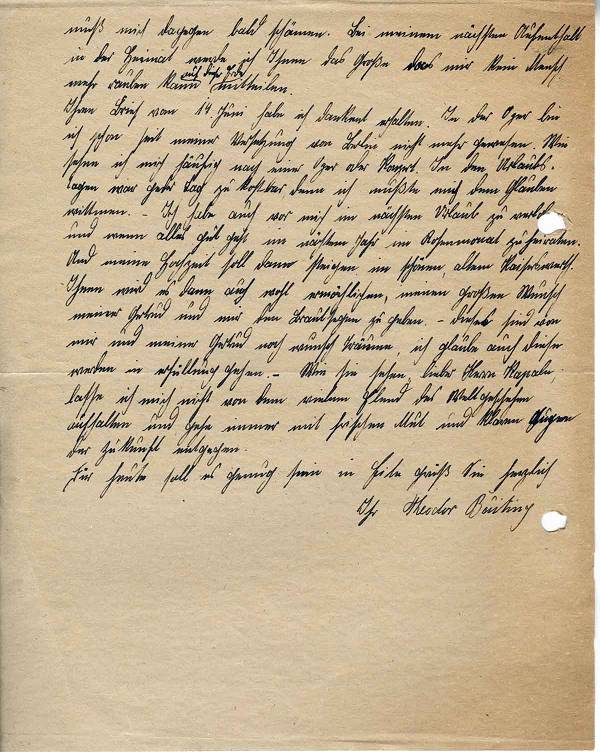 muß mich dagegen bald schämen. Bei meinem nächsten Aufenthalt
in der Heimat werde ich Ihnen das Große das mir kein Mensch
mehr rauben kann auf diese mitteilen.
Ihren Brief vom 14 Juni habe ich dankent erhalten. In der Oper bin
ich schon seit meiner Versetzung von Berlin nicht mehr gewesen. Wie
sehne ich mich häufig nach einer Oper oder Konzert. In den Urlaubs-
tagen war jeder Tag zu kostbar denn ich müßte mich dem Glauben
wittmen. – Ich habe auch vor mich im nächsten Urlaub zu verloben
und wenn alles gut geht im nächsten Jahr im Rosenmonat zu heiraten.
Und meine Hochzeit soll dann steigen im schönen, altem Kaiserswerth.
Ihnen wird es dann auch wohl ermöglichen, meinen großen Wunsch
meiner Gertrud und mir den Brautsegen zu geben. – Dieses sind von
mir und meiner Gertrud noch wunsch träume, ich glaube auch dieser
werden in erfüllung gehen. – Wie sie sehen, lieber Herr Kaplan,
lasse ich mich nicht von dem vielem Elend des Weltgeschehen
aufhalten und gehe immer mit frischen Mut und klaren Augen
der Zukunft entgegen.
Für heute soll es genug sein in Eile grüß Sie herzlich
Ihr Theodor Büiting